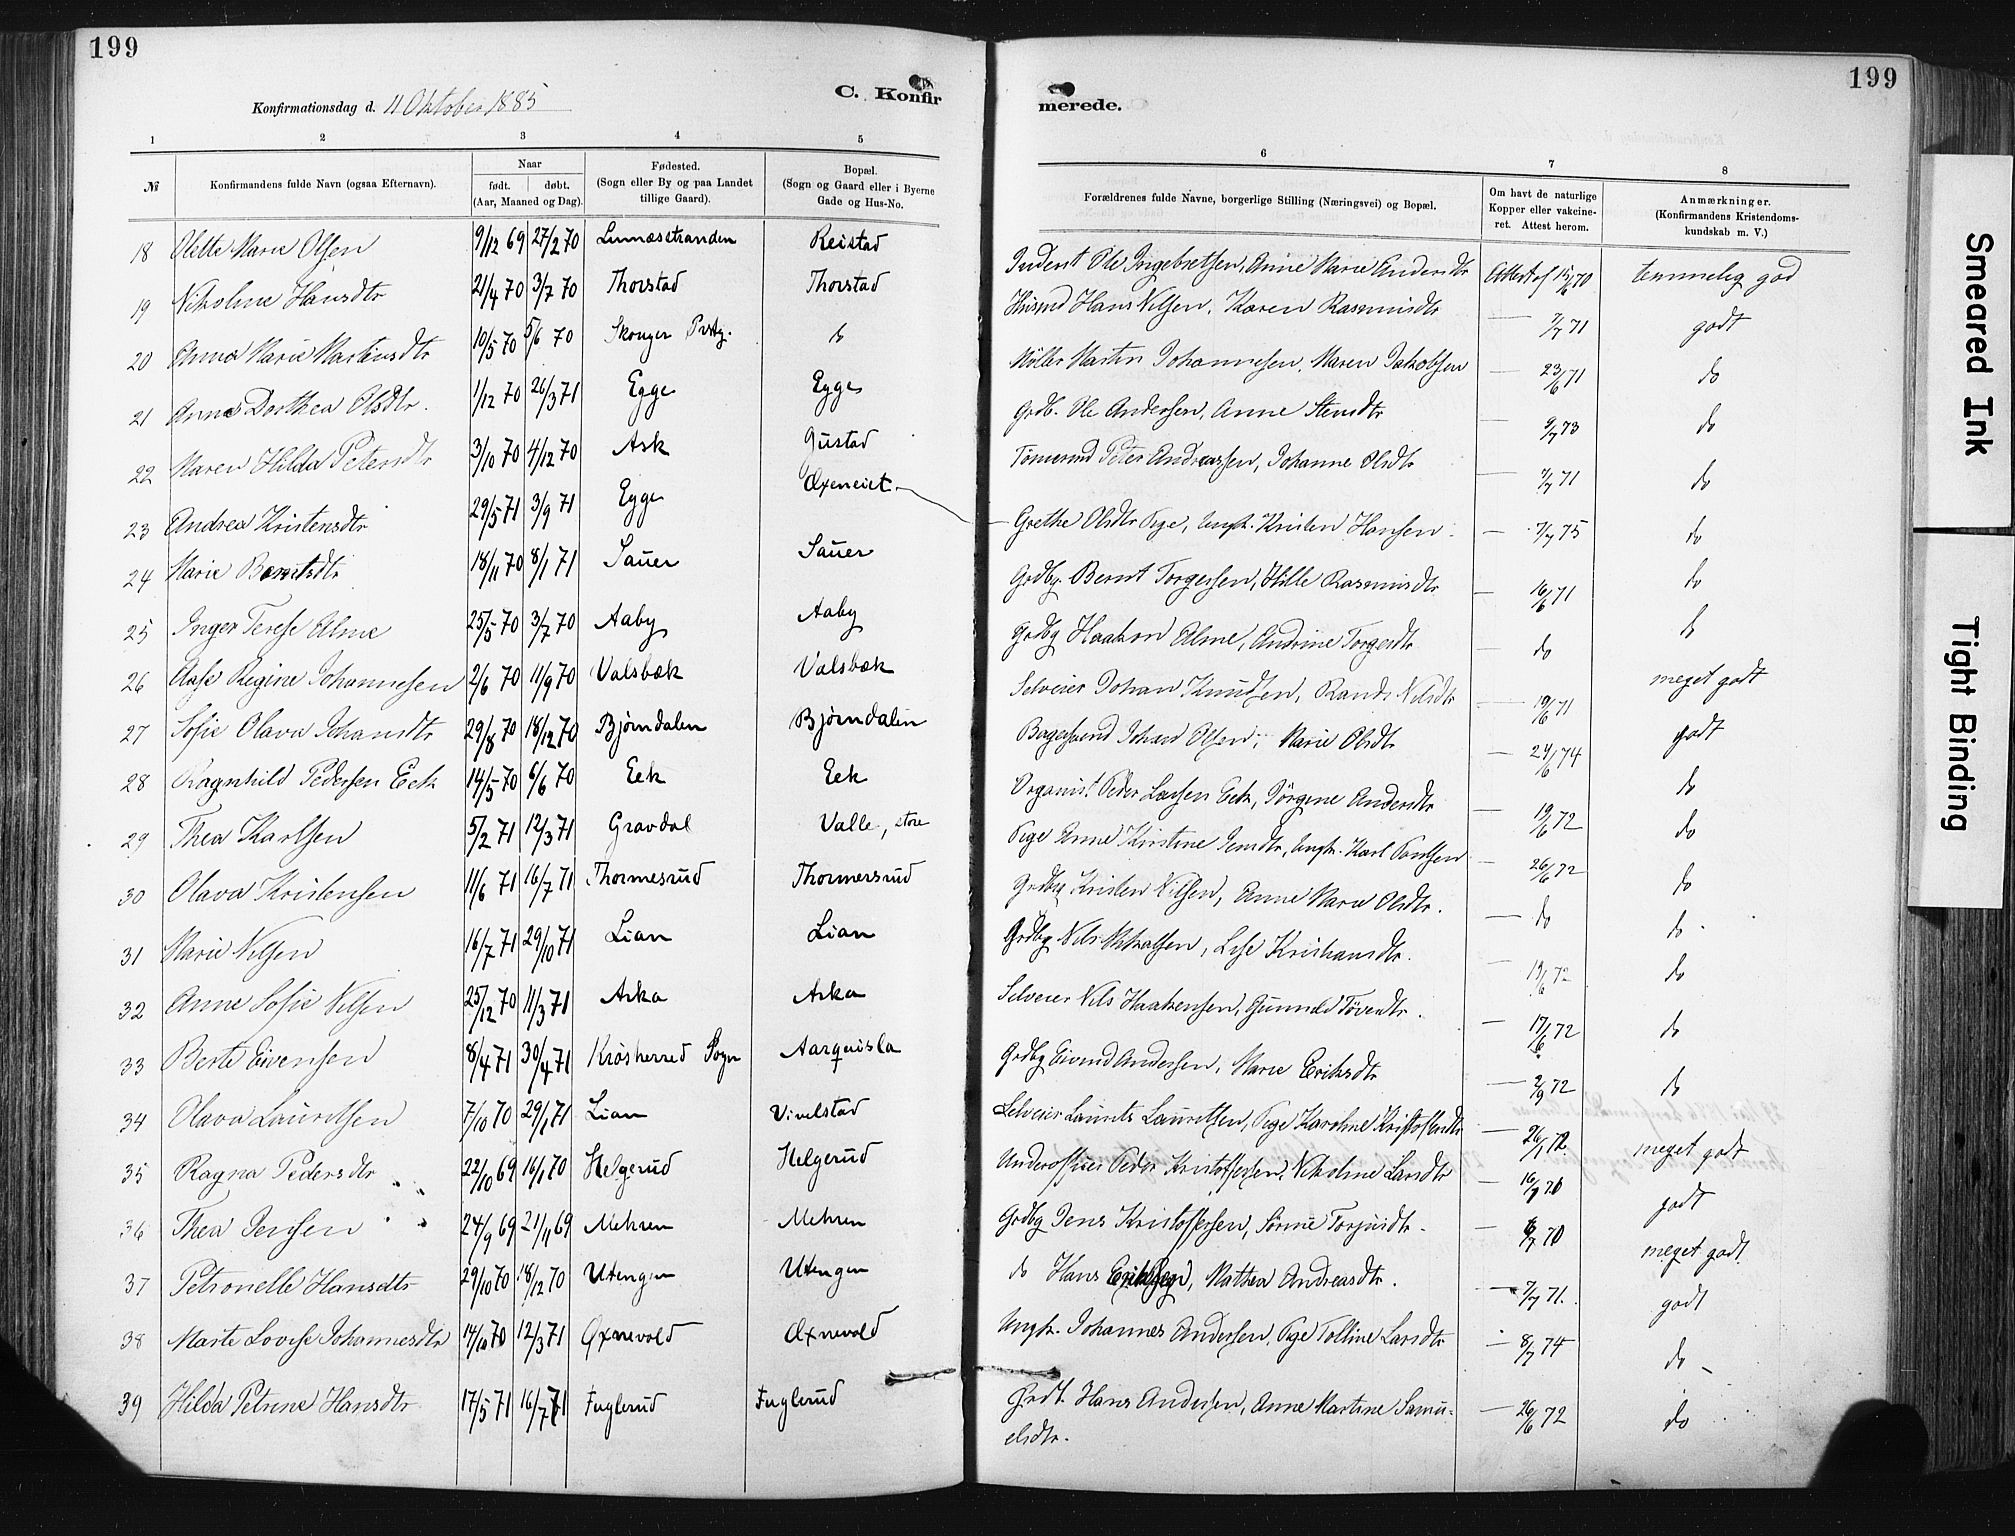 199
199
Konfirmationsdag d. 11 Oktober 1885
C. Konfir
merede.
1 2 3 4 5
6 7 8
№
Konfirmandens fulde Navn (ogsaa Efternavn).
Naar
født. døbt.
(Aar, Maaned og Dag).
Fødested.
(Sogn eller By og paa Landet
tillige Gaard).
Bopæl.
(Sogn og Gaard eller i Byerne
Gade og Hus-No.
Forældrenes fulde Navne, borgerlige Stilling (Næringsvei) og Bopæl.
Om havt de naturlige
Kopper eller vakcine-
ret. Attest herom.
Anmærkninger.
(Konfirmandens Kristendoms-
kundskab m. V.)
18 Olette Marie Olsen 9/12 69 27/2 70 Linnæsstranden Reistad Inderst Ole Ingebretsen, Anne Marie Andersdtr Attest af 15/6 70 temmelig god
19 Nikoline Hansdtr 21/4 70 3/7 70 Thorstad Thorstad Husmd Hans Nilsen, Karen Rasmusdtr — 7/7 71 godt
20 Anna Marie Martinsdtr 10/5 70 5/6 70 Skouger Prstg. do Møller Martin Johannesen, Maren Jakobsen — 23/6 71 do
21 Anne Dorthea Olsdtr. 1/12 70 26/3 71 Egge Egge Grdb. Ole Andersen, Anne Stensdtr — 9/7 73 do
22 Maren Hilda Petersdtr 3/10 70 4/12 70 Ask Gustad Tømermd Peter Andreassen, Johanne Olsdtr — 7/7 71 do
23 Andrea Kristensdtr 29/5 71 3/9 71 Egge Oxeneiet — Grethe Olsdtr Pige, Ungk. Kristen Hansen. — 7/7 75 do
24 Marie Berntsdtr 18/11 70 8/1 71 Sauer Sauer Grdbg. Bernt Torgersen, Hille Rasmusdtr — 16/6 71 do
25 Inger Terese Alme 25/5 70 3/7 70 Aaby Aaby Grdbg Haakon Alme, Andrine Torgersdtr — do do
26 Aase Regine Johannesen 2/6 70 11/9 70 Valsbæk Valsbæk Selveier Johan Knudsen, Randi Nilsdtr — 19/6 71 meget godt
27 Sofie Olava Johansdtr 29/8 70 18/12 70 Bjørndalen Bjørndalen Bagersvend Johan Olsen, Marie Olsdtr — 24/6 74 godt
28 Ragnhild Pedersen Eek 14/5 70 6/6 70 Eek Eek Organist Peder Larsen Eek, Jørgine Andersdtr — 19/6 72 do
29 Thea Karlsen 5/2 71 12/3 71 Gravdal Valle, store Pige Anne Kirstine Jensdtr, Ungk. Karl Paulsen — 26/6 72 do
30 Olava Kristensen 11/6 71 16/7 71 Thormesrud Thormersrud Grdbg Kristen Nilsen, Anne Marie Olsdtr. — do do
31 Marie Nilsen 16/7 71 29/10 71 Lian Lian Grdbg Nils Mikalsen, Lise Kristiansdtr. — 19/6 72 do.
32 Anne Sofie Nilsen 25/12 70 11/3 71 Aska Aska Selveier Nils Haakensen, Gunnild Tøvesdtr. — 17/6 72 do
33 Berte Eivensen 8/4 71 30/4 71 Krøsherred Sogn Aarqvisla Grdbg Eivind Andersen, Marie Eriksdtr — 2/9 72 do
34 Olava Lauritsen 7/10 70 29/1 71 Lian Vivelstad Selveier Laurits Lauritsen, Pige Karoline Kristoffersdtr — 26/1 72 do
35 Ragna Pedersdtr 22/10 69 16/1 70 Helgerud Helgerud Underofficer Peder Kristoffersen, Nikoline Larsdtr — 16/7 70 meget godt
36 Thea Jensen 24/9 69 21/11 69 Mehren Mehren Grdbg Jens Kristoffersen, Sørine Torjusdtr. — 8/7 70 godt
37 Petronelle Hansdtr 29/10 70 18/12 70 Utengen Utengen do Hans Eriksen, Mathea Andreasdtr. — 7/7 71. meget godt
38 Marte Lovise Johannesdtr 14/10 70 12/3 71 Oxnevold Oxnevold Ungk. Johannes Andersen, Pige Tolline Larsdtr — 8/7 74 godt
do —
39 Hilda Petrine Hansdtr 17/5 71 16/7 71 Fuglerud Fuglerud Grdb. Hans Andersen, Anne Martine Samu-
elsdtr. — 26/6 72 do
Smeared Ink
Tight Binding